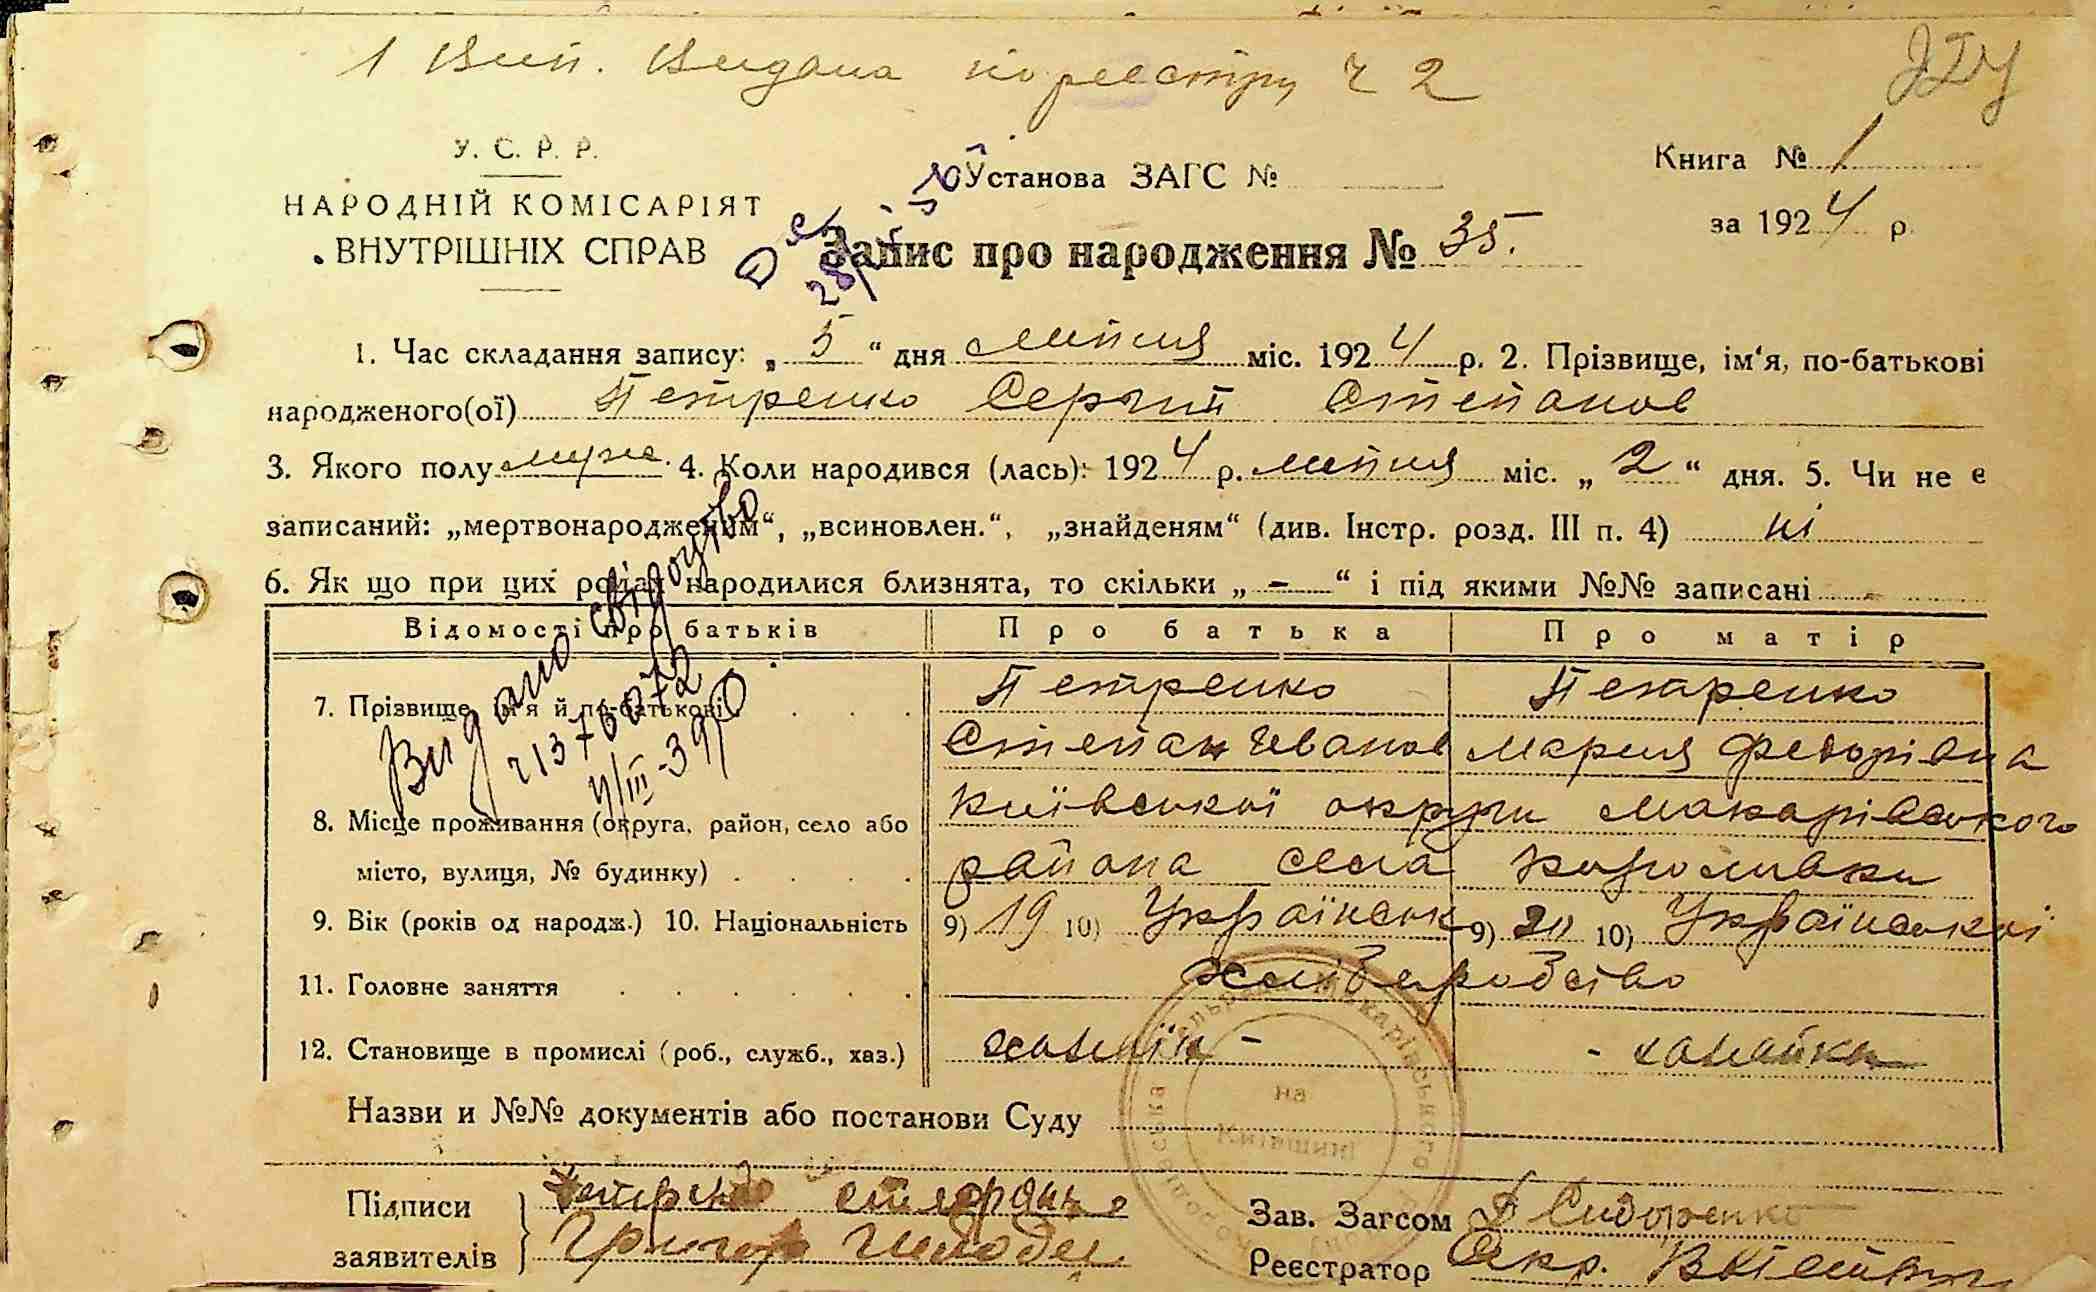 1 Вип. Видана по реєстру ч 2
У. С. Р. Р.
НАРОДНІЙ КОМІСАРІЯТ
ВНУТРІШНІХ СПРАВ
Установа ЗАГС №
Книга № 1
за 1924 р.
Запис про народження № 35.
1. Час складання запису: „ 5 “ дня липня міс. 1924 р. 2. Прізвище, ім‘я, по-батькові
народженого(ої) Петренко Сергий Степанов
3. Якого полу муж. 4. Коли народився (лась): 1924 р. липня міс. „ 2 “ дня. 5. Чи не є
записаний: „мертвонародженим“, „всиновлен.“, „знайденям“ (див. Інстр. розд. III п. 4) ні
6. Як що при цих родах народилися близнята, то скільки „ - “ і під якими №№ записані -
Відомості про батьків Про батька Про матір
7. Прізвище, ім‘я й по-батькові Петренко Петренко
Степан Иванов Мария Федорівна
8. Місце проживання (округа, район, село або Київської округи Макарівського
місто, вулиця, № будинку) района села Королівки
9. Вік (років од народж.) 10. Національність 9) 19 10) Українськ 9) 20 10) Українські
11. Головне заняття хліборобство
12. Становище в промислі (роб., служб., хаз.) хазяїн - - хазяйка
Видано свідоцтво
Назви и №№ документів або постанови Суду
Підписи Петренко
заявителів Григор
Зав. Загсом Д Сидоренко
Реєстратор
на Київщині